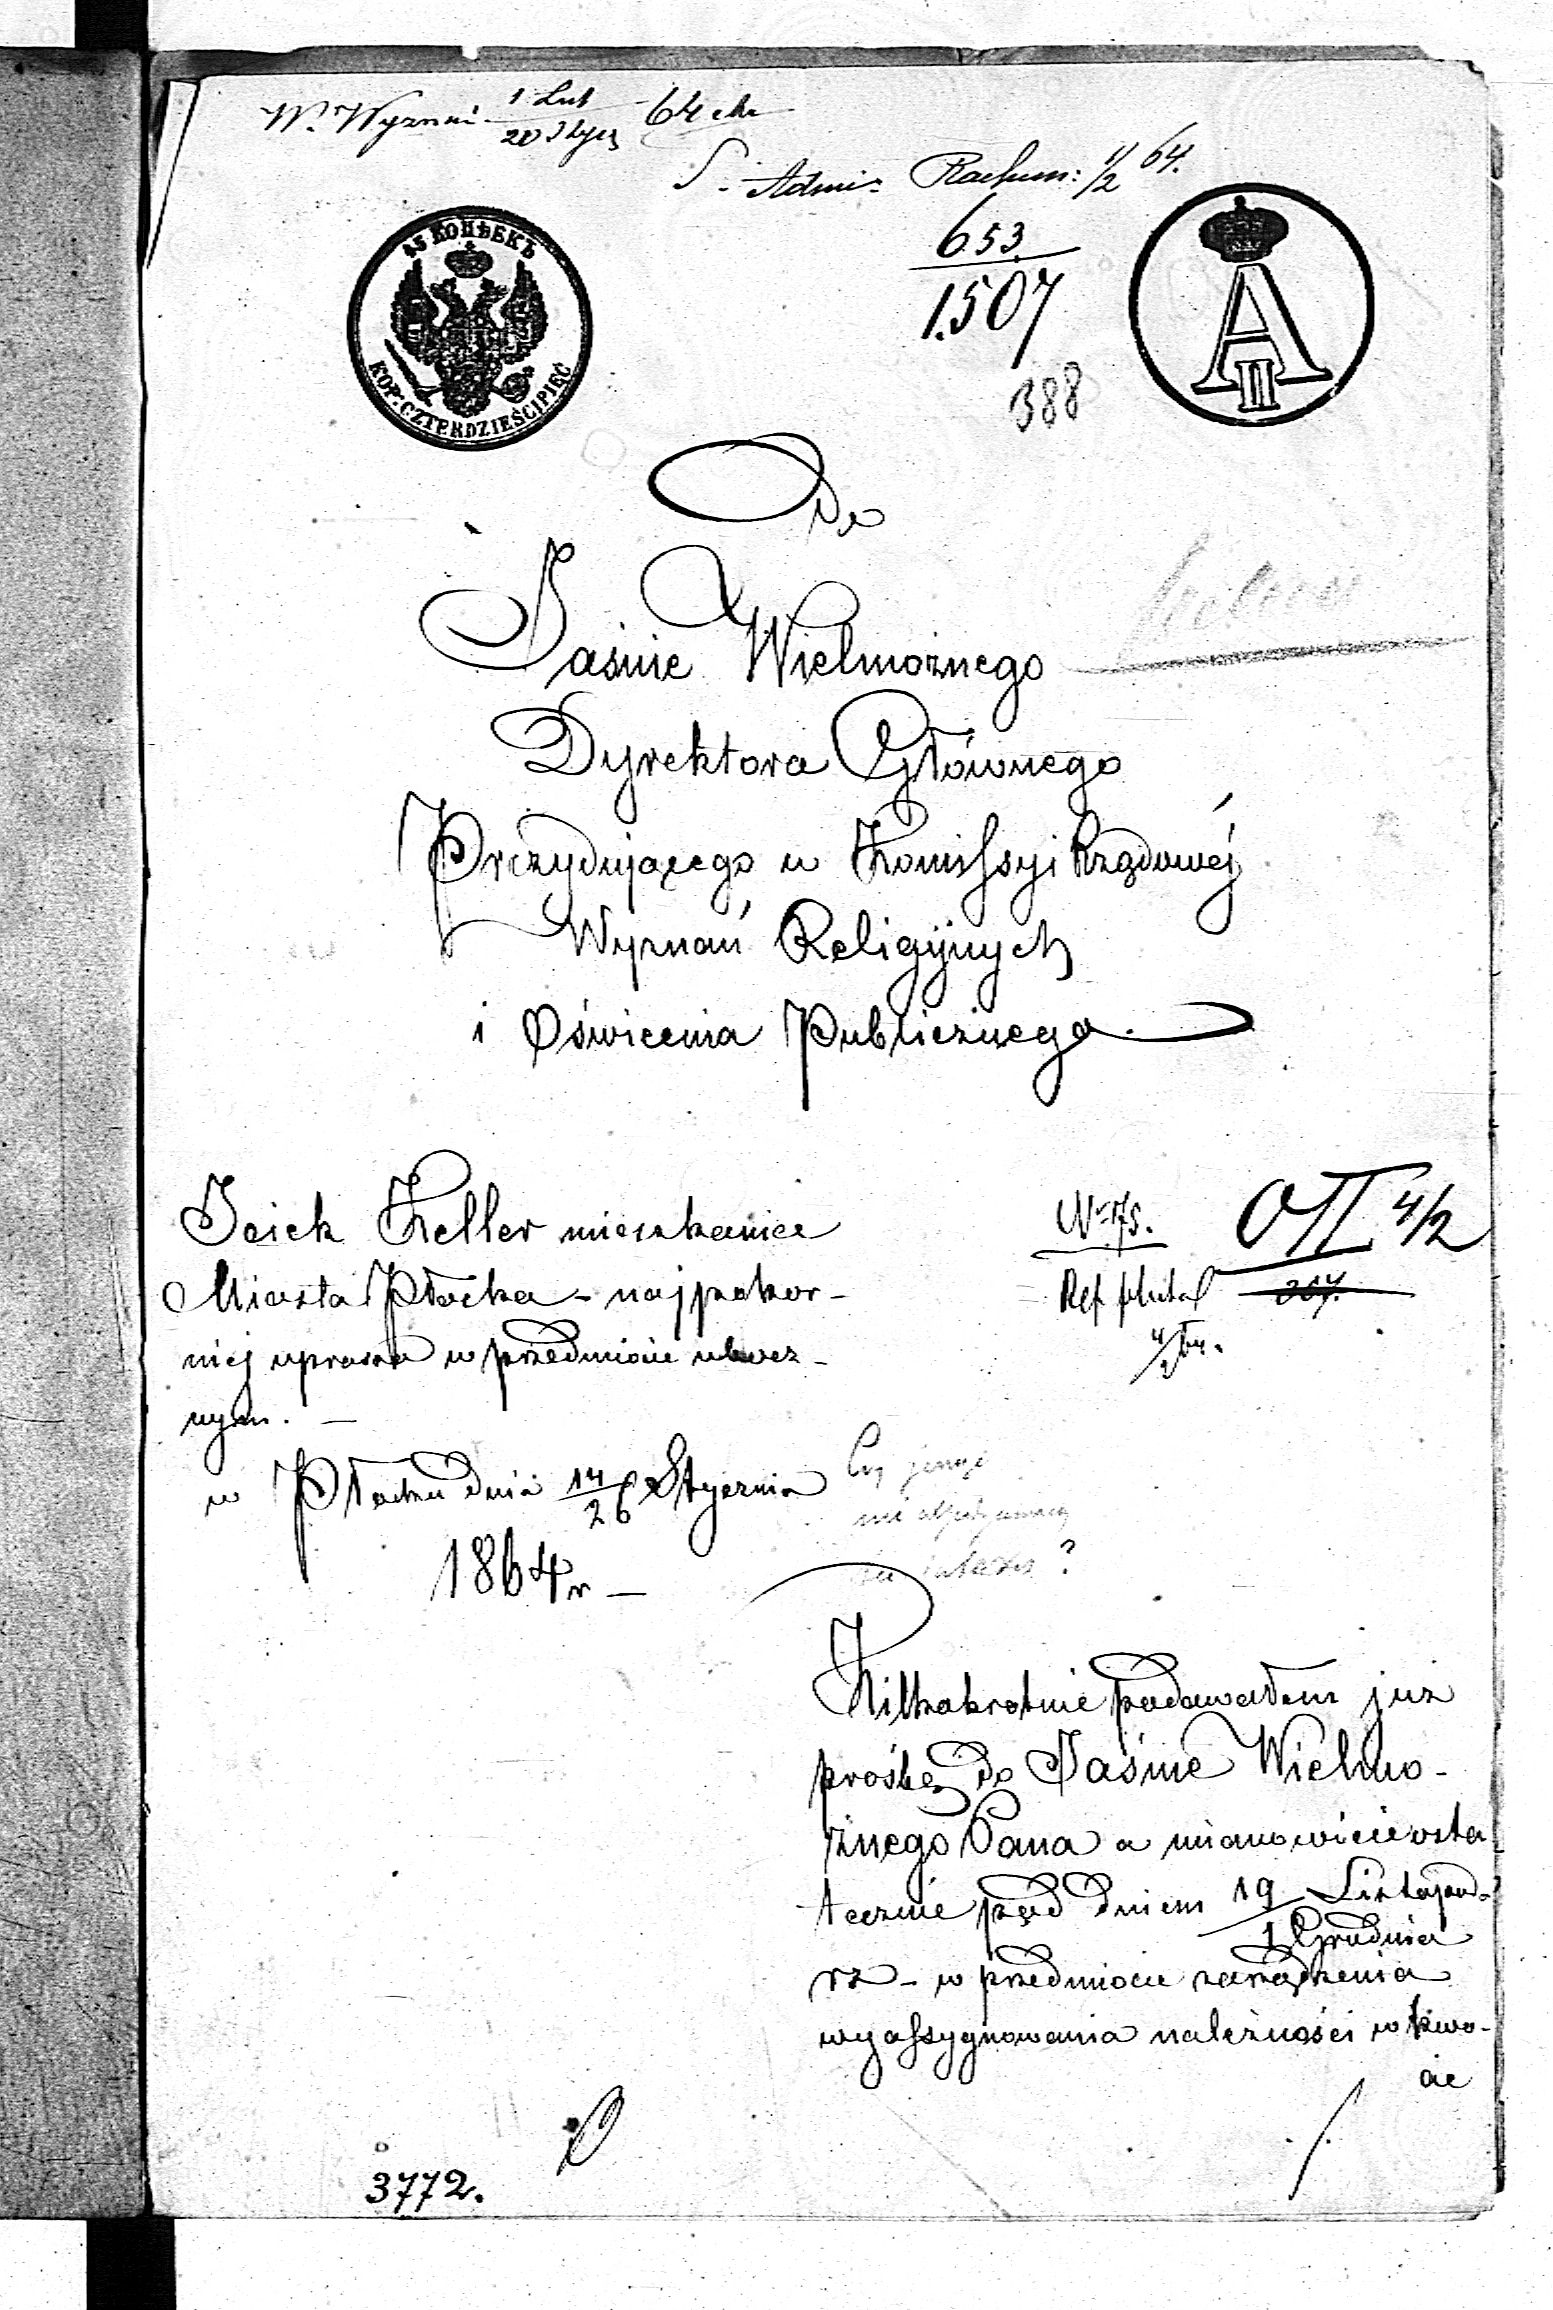 W. Wyznań 1 Lut 64
20 Stycz
S. Admi: Rachun: 1/2 64.
45 КОПѢЕКЪ
KOP: CZTERDZIEŚCI PIĘĆ
653.
1507
A II
388
Do
Jaśnie Wielmożnego
Dyrektora Głównego
Prezydującego w Kommissyi Rządowéj
Wyznań Religijnych
i Oświecenia Publicznego.
Icick Keller mieszkaniec
Miasta Płocka – najpokor-
niej uprasza w przedmiocie
nym. –
w Płocku dnia 14/26 Stycznia
1864 r –
Nr 175.
OII 4/2
Ref.
4/2 64.
Czy
nie
?
Kilkakrotnie podawałem już
prośbę do Jaśnie Wielmo-
żnego Pana a mianowicie osta
tecznie pod dniem 19 Listopad-
1 Grudnia
rz – w przedmiocie zarządzenia
wyassygnowania należności w kwo-
cie
3772.